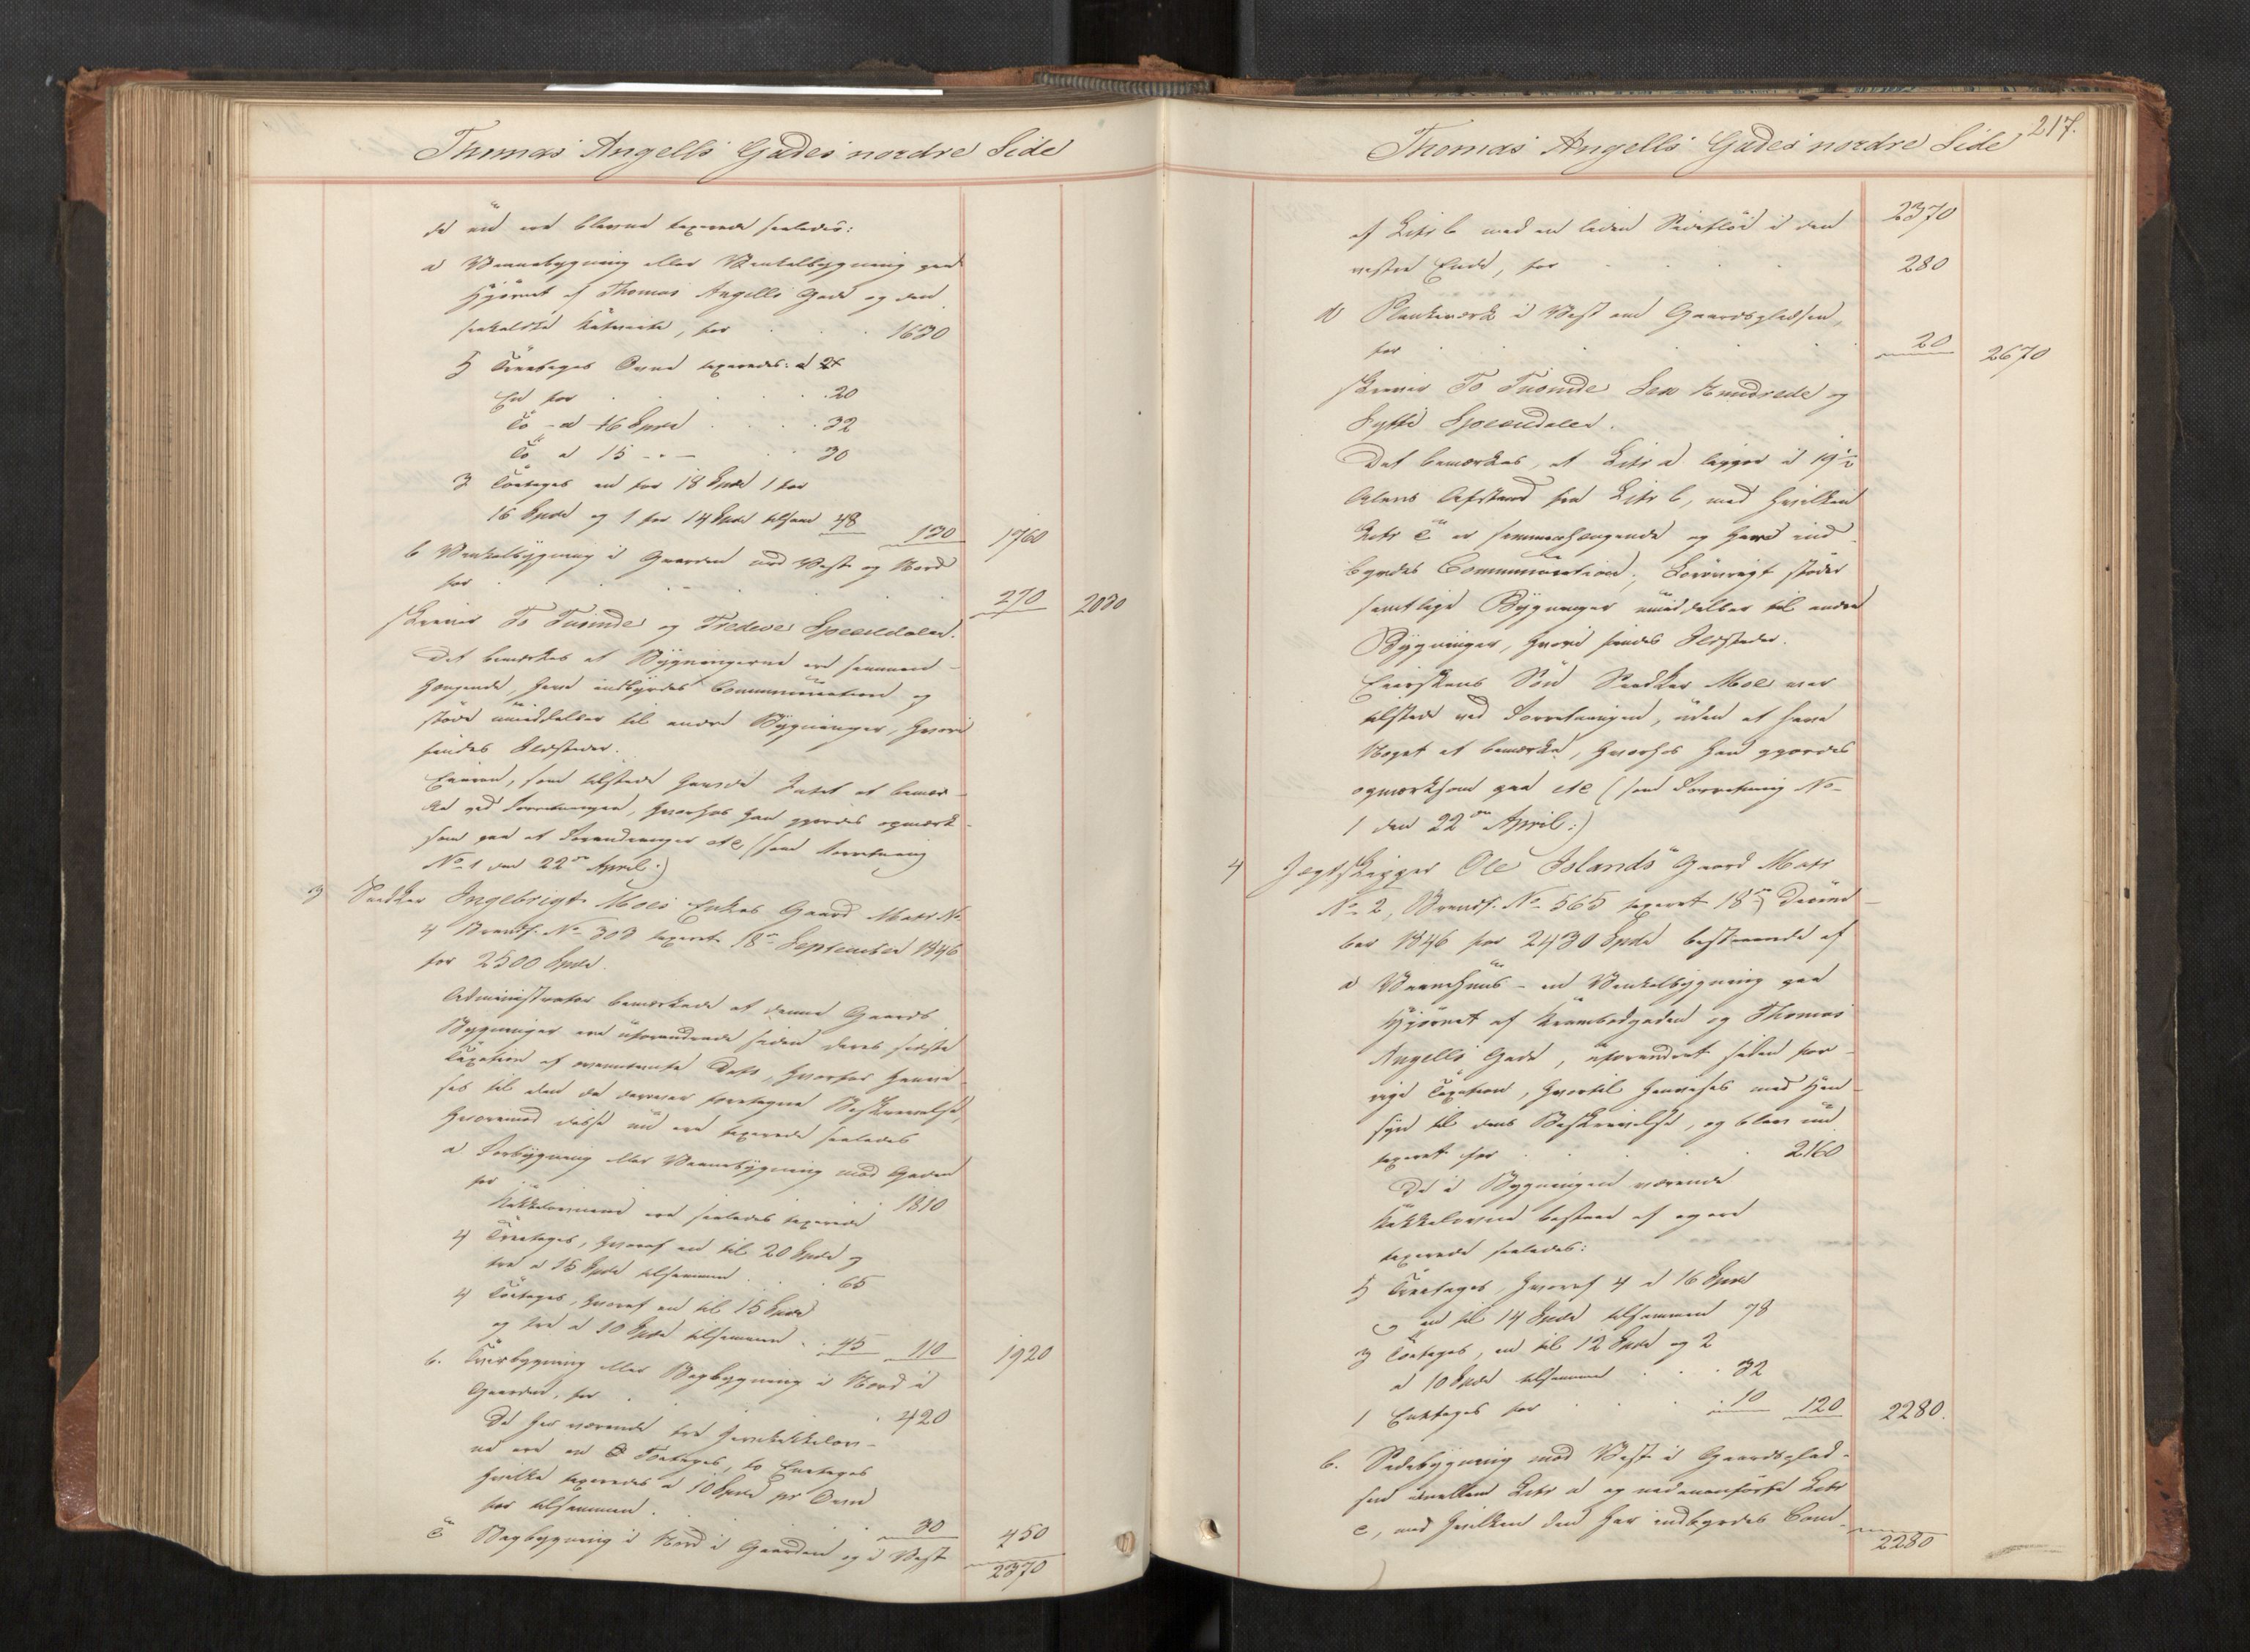 Thomas Angells Gades nordre Side
de nu ere blevne taxerede saaledes:
a Vaanebygning eller Vinkelbygning paa
Hjørnet af Thomas Angells Gade og den
saakaldte Katveite, for 1630
5 Treetages Ovne taxeredes:
En for 20
To a 16 Spd 32
To a 15 — 30
3 Toetages en for 18 Spd 1 for
16 Spd og 1 for 14 Spd tilsam 48 130 1760
b Vinkelbygning i Gaarden mod Vest og Nord
for 270 2030
skriver To Tusinde og Tredive Speciedaler.
Det bemærkes at Bygningerne ere sammen-
hængende, have indbyrdes Communication og
støde umiddelbar til andre Bygninger, hvori
findes Ildsteder.
Eieren, som tilstede havde Intet at bemær-
ke ved Forretningen, hvorhos han gjordes opmærk-
som paa at Forandringer etc (som Forretning
No 1 den 22de April:)
3 Snedker Ingebrigt Moes Enkes Gaard Matr No
4 Brandf. No 303 taxeret 18de September 1846
for 2500 Spd.
Administrator bemærkede at denne Gaards
Bygninger ere uforandrede siden deres sidste
Taxation af ovennævnte Dato, hvorfor henvi-
ses til den da derover foretagne Beskrivelse,
hvoremod disse nu ere taxerede saaledes
a Forbygning eller Vaanebygning mod Gaden
for 1810
Kakkelovnene ere saaledes taxerede
4 Treetages, hvoraf en til 20 Spd og
tre a 15 Spd tilsammen 65
4 Toetages, hvoraf en til 15 Spd
og tre a 10 Spd tilsammen 45 110 1920
b. Tverbygning eller Bagbygning i Nord i
Gaarden, for 420
De her værende tre Jernkakkelov-
ne ere en Toetages, to Enetages
hvilke taxeredes a 10 Spd pr Ovn
for tilsammen 30 450
c Bagbygning i Nord i Gaarden og i Vest
2370
217.
Thomas Angells Gades nordre Side
af Litr b med en liden Sidefløi i den 2370
vestre Ende, for 280
d Plankeværk i Vest om Gaardspladsen,
for 20 2670
skriver To Tusinde Sex Hundrede og
Sytti Speciedaler.
Det bemærkes, at Litr a ligger i 19 1/2
Alens Afstand fra Litr b, med hvilken
Litr c er sammenhængende og have ind-
byrdes Communication; Forøvrigt støder
samtlige Bygninger umiddelbar til andre
Bygninger, hvori findes Ildsteder.
Eierskens Søn Snedker Moe var
tilstede ved Forretningen, uden at have
Noget at bemærke, hvorhos han gjordes
opmærksom paa etc (som Forretning No
1 den 22de April:)
4 Jegtskipper Ole Islands Gaard Matr
No 2, Brandf. No 565 taxeret 18de Decem-
ber 1846 for 2430 Spd bestaaende af
a Vaanehuus – en Vinkelbygning paa
Hjørnet af Krambodgaden og Thomas
Angells Gade, uforandret siden for-
rige Taxation, hvortil henvises med Hen-
syn til dens Beskrivelse, og blev nu
taxeret for 2160
De i Bygningen værende
Kakkelovne bestaae af og ere
taxerede saaledes:
5 Treetages, hvoraf 4 a 16 Spd
og en til 14 Spd tilsammen 78
3 Toetages, en til 12 Spd og 2
a 10 Spd tilsammen 32
1 Enetages for 10 120 2280.
b. Sidebygning mod Vest i Gaardsplad-
sen imellem Litr a og nedenanførte Litr
c, med hvilken den har indbyrdes Com-
2280